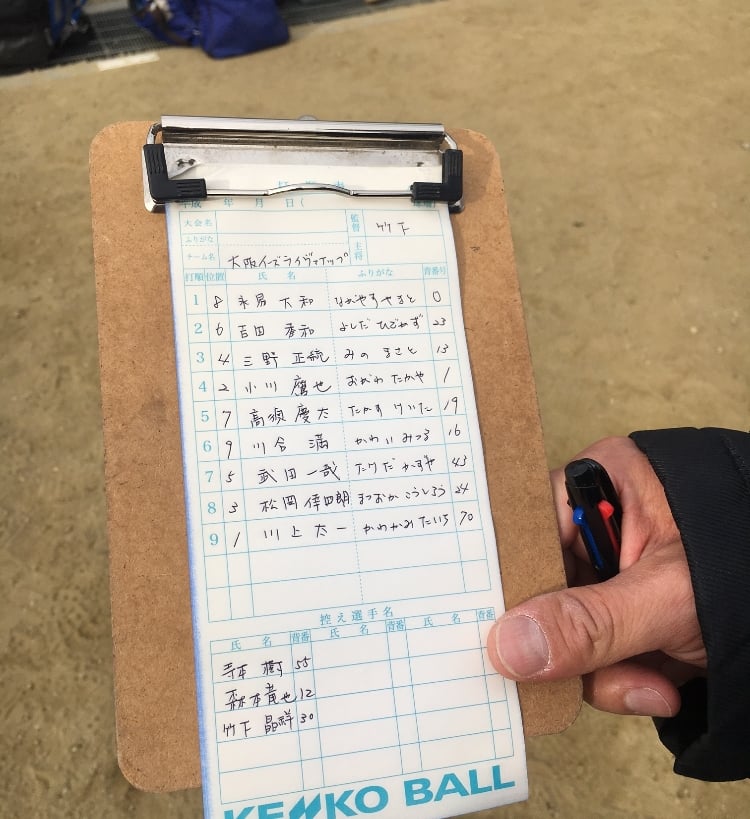 平成 年 月 日(
大会名
監督 竹下
ふりがな
主将
チーム名 大阪イーズライヴァナップ
打順 位置 氏 名 ふりがな 背番号
1 8 永易 大和 ながやす やまと 0
2 6 吉田 秀和 よしだ ひでかず 23
3 4 三野 正統 みの まさと 13
4 2 小川 鷹也 おがわ たかや 1
5 7 高須 慶太 たかす けいた 19
6 9 川合 満 かわい みつる 16
7 5 武田 一哉 たけだ かずや 43
8 3 松岡 倖四朗 まつおか こうしろう 24
9 1 川上 太一 かわかみ たいち 70
控え選手名
氏 名 背番 氏 名 背番 氏 名 背番
寺本 樹 55
森本 竜也 12
竹下 晶祥 30
KENKO BALL